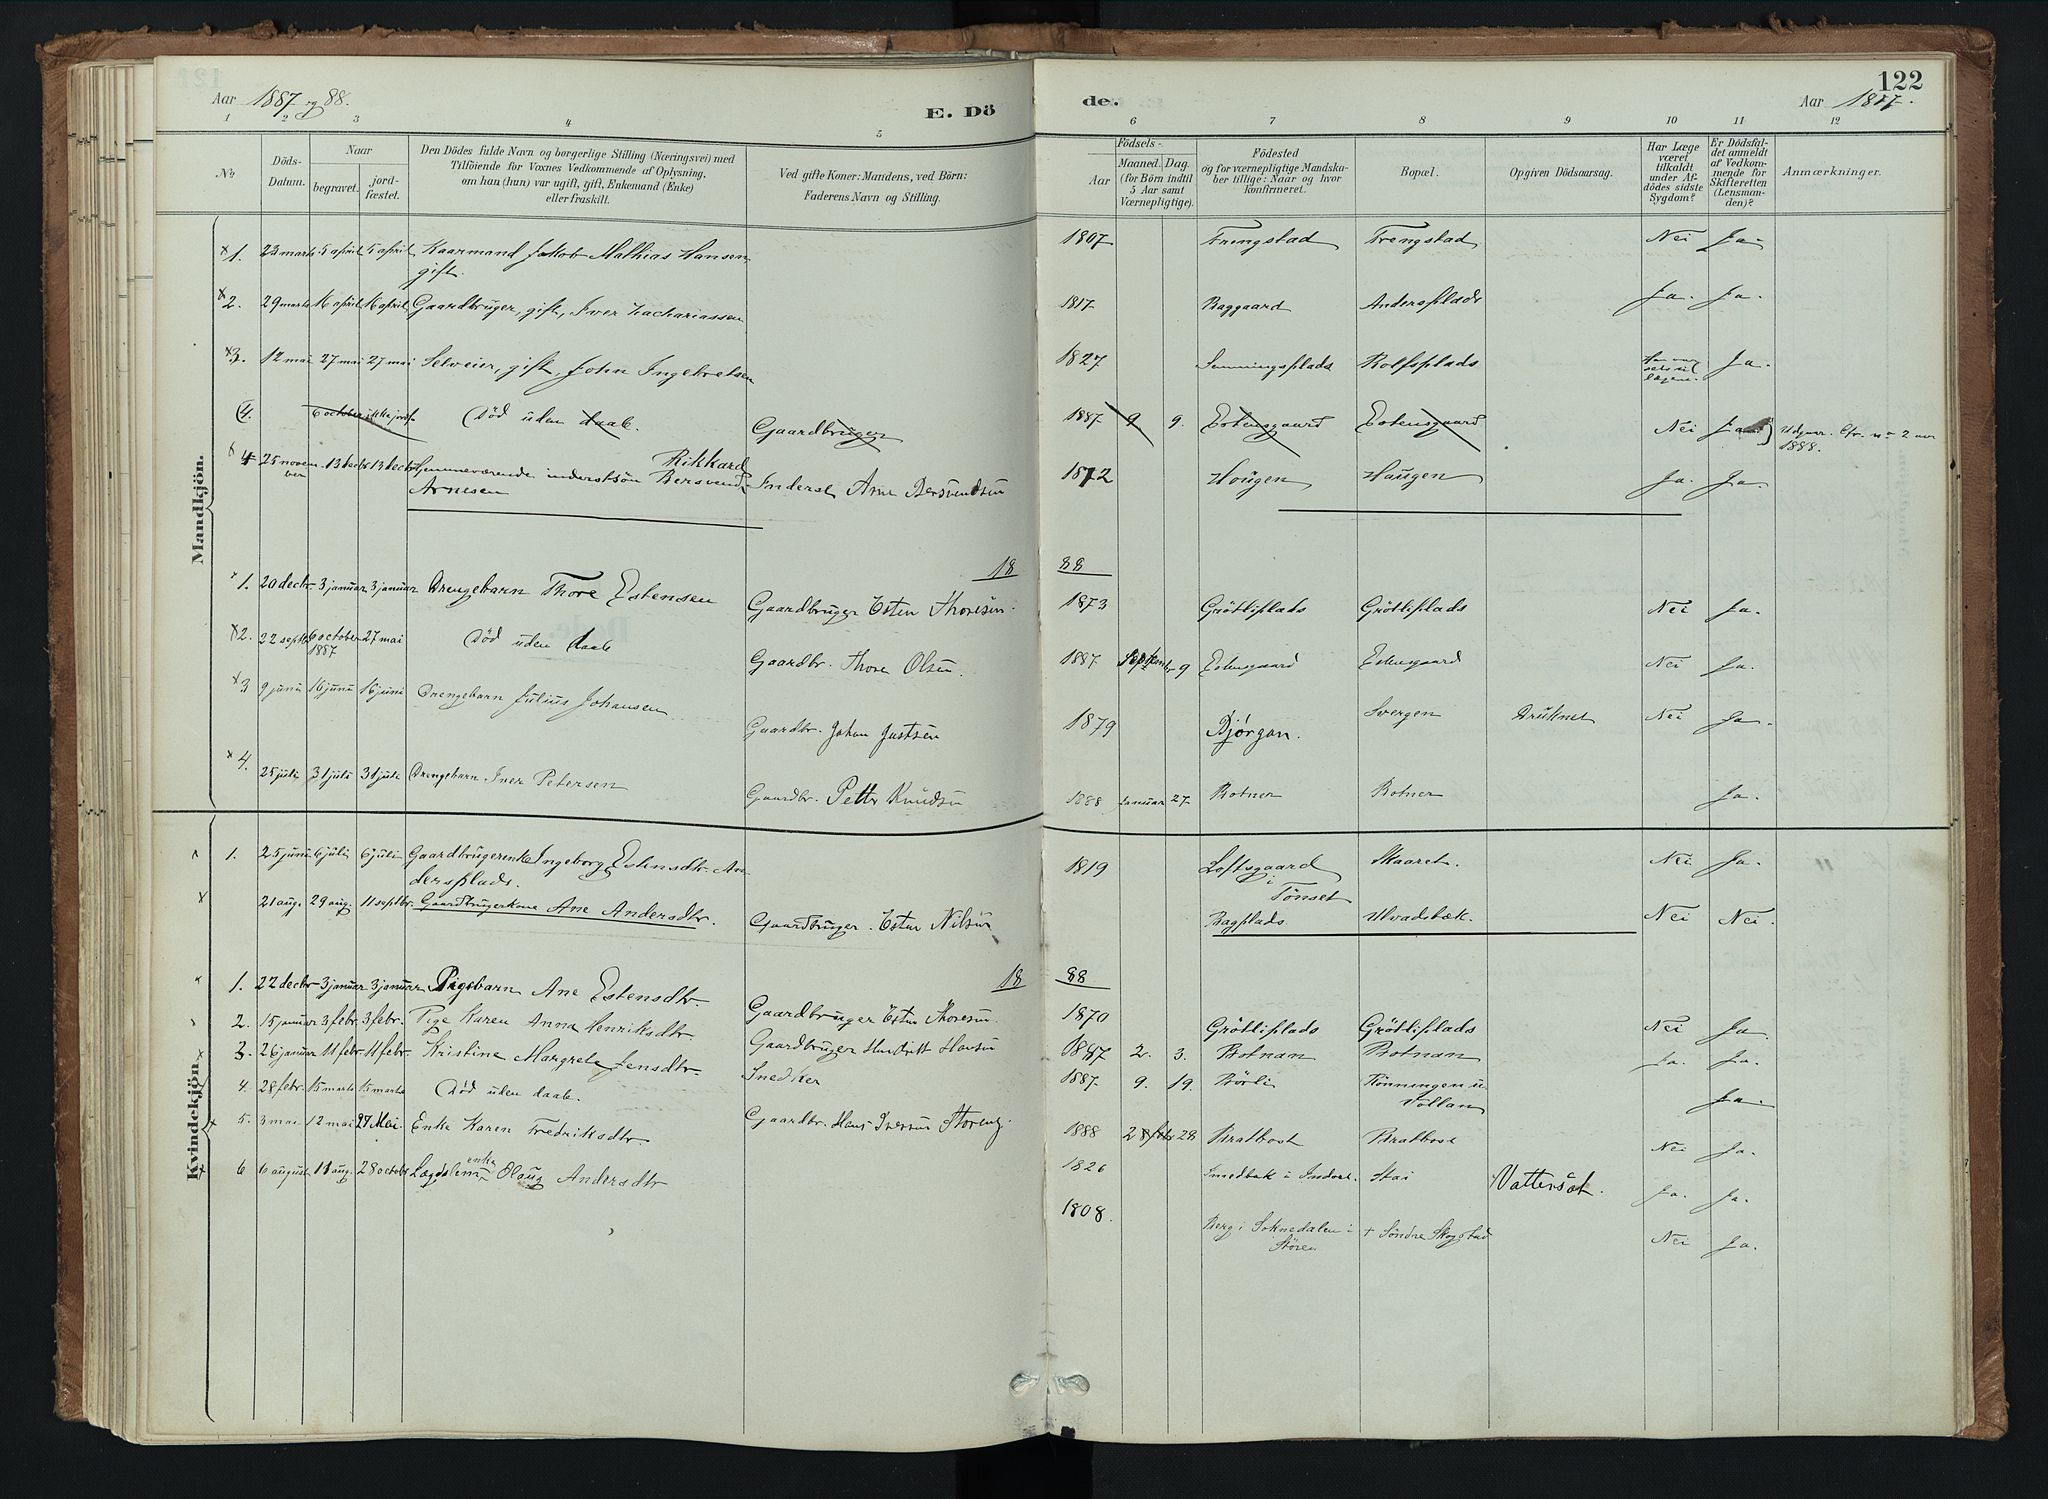 Aar 1887 og 88.
E. Dö
de.
122
Aar 1887.
1 2 3 4 5 6 7 8 9 10 11 12
No
Döds-Datum.
Naar
begravet.
jord-fæstet.
Den Dödes fulde Navn og borgerlige Stilling (Næringsvei) med
Tilföiende for Voxnes Vedkommende af Oplysning,
om han (hun) var ugift, gift, Enkemand (Enke)
eller fraskilt.
Ved gifte Koner: Mandens, ved Börn:
Faderens Navn og Stilling.
Födsels-
Aar
Maaned. Dag.
(for Börn indtil
5 Aar samt
Værnepligtige).
Födested
og for værnepligtige Mandska-
ber tillige: Naar og hvor
konfirmeret.
Bopæl.
Opgiven Dödsaarsag.
Har Læge
været
tilkaldt
under Af-
dödes sidste
Sygdom?
Er Dödsfal-
det anmeldt
af Vedkom-
mende for
Skifteretten
(Lensman-
den)?
Anmærkninger.
Mandkjön.
1. 23 marts 5 april 5 april Kaarmand Jakob Mathias Hansen, 1807 Trengstad Trengstad Nei Ja.
gift.
2. 29 marts 16 april 16 april Gaardbruger, gift, Iver Zachariassen 1817 Baggaard Andersplads Ja. Ja.
3. 12 mai 27 mai 27 mai Selveier, gift, John Ingebretsen 1827 Semmingsplads Rolfsplads Ja.
4. 6 october ikke jordf. Död uden daab. Gaardbruger 1887 9 9. Estensgaard Estensgaard Nei Ja Udgaar. Cfr. no 2 aar
1888.
4 25 novem 13 decbr 13 decbr Hjemmeværende inderstsön Rikkard Inderst Arne Bersvendsen 1872 Haugen Haugen Ja. Ja.
ber Bersvend
Arnesen
18 88
1. 20 decbr 3 januar 3 januar Drengebarn Thore Estensen Gaardbruger Esten Thoresen. 1873 Grötliplads Grötliplads Nei Ja.
2. 22 septbr 6 october 27 mai Död uden daab Gaardbr. Thore Olsen. 1887 September 9 Estensgaard Estensgaard Nei Ja.
1887
3 9 juni 16 juni 16 juni Drengebarn Julius Johansen Gaardbr. Johan Justsen 1879 Bjørgan. Svergen Druknet Nei Ja.
4. 25 juli 31 juli 31 juli Drengebarn Iver Petersen Gaardbr. Petter Knudsen 1888 Januar 27 Rotner Rotner Ja.
Kvindekjön.
1. 25 juni 6 juli 6 juli Gaardbrugerenke Ingeborg Estensdtr. An 1819 Loftsgaard Skaaret. Nei Ja.
dersplads. i
Tönset
21 aug. 29 aug. 11 septbr. Gaardbrugerkone Ane Andersdtr. Gaardbruger Esten Nilsen Bagplads. Ulvadsbæk. Nei Nei.
18 88
1. 22 decbr 3 januar 3 januar Pigebarn Ane Estensdtr. Gaardbruger Esten Thoresen. 1870 Grötliplads Grötliplads Nei Ja
2. 15 januar 3 febr. 3 febr. Pige Karen Anna Henriksdtr. Gaardbruger Hendrik Hansen 1887 2. 3. Rotnan Rotnan Ja. Ja.
3. 26 januar 11 febr. 11 febr. Kristine Margrete Jensdtr. Snedker 1887. 9. 19. Börli Rönningen u. Ja.
Vollan
4. 28 febr. 15 marts 15 marts Död uden daab. Gaardbr. Hans Iversen Storeng. 1888 2 febr 28 Bratbost Bratbost Nei Ja.
5. 3 mai 12 mai 27 Mai. Enke Karen Fredriksdtr. 1826 Smedbak i Indset. Stai Vattersot. Ja. Ja.
6 6 august 18 aug. 28 octobr Lægdslem enke Olaug Andersdtr 1808. Berg i Soknedalen i + Söndre Skogstad Nei Ja.
Stören